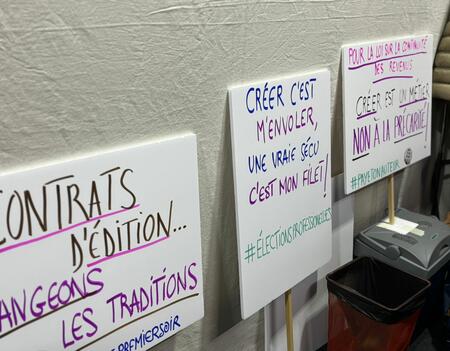 CONTRATS
D'ÉDITION...
ANGEONS
LES TRADITIONS
PREMIERSOIR
CRÉER C'EST
M'ENVOLER,
UNE VRAIE SÉCU
C'EST MON FILET!
#ÉLECTIONSPROFESSIONNELLES
POUR LA LOI SUR LA CONTINUITÉ
DES REVENUS
CRÉER EST UN MÉTIER
NON À LA PRÉCARITÉ!
#PAYETONAUTEUR